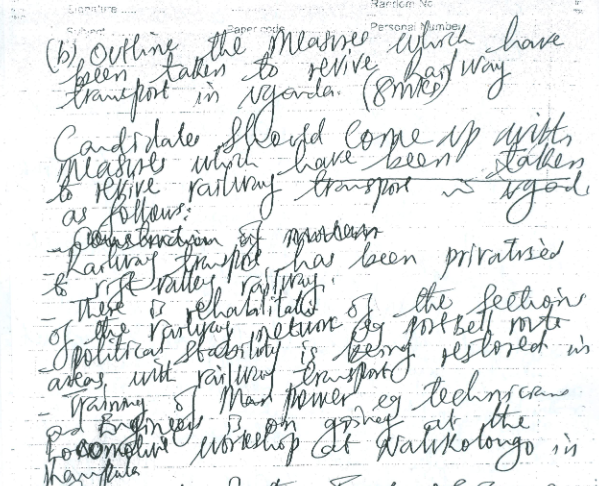 Signature
Random No.
Subject
Paper code
Personal Number
(b) Outline the measures which have
been taken to revive railway
transport in uganda. (8mks)
Candidates should come up with
measures which have been taken
to revive railway transport in ugand
as follows:
- Construction of modern
- Railway transport has been privatised
to rift valley railway.
- There is rehabilitatn
of the railway network of the sections
eg port bell route
- political stability is being restored in
areas with railway transport
- Training of Man power eg technicians
and Engineers is on going at the
Locomotive workshop at Nalukolongo in
Kampala